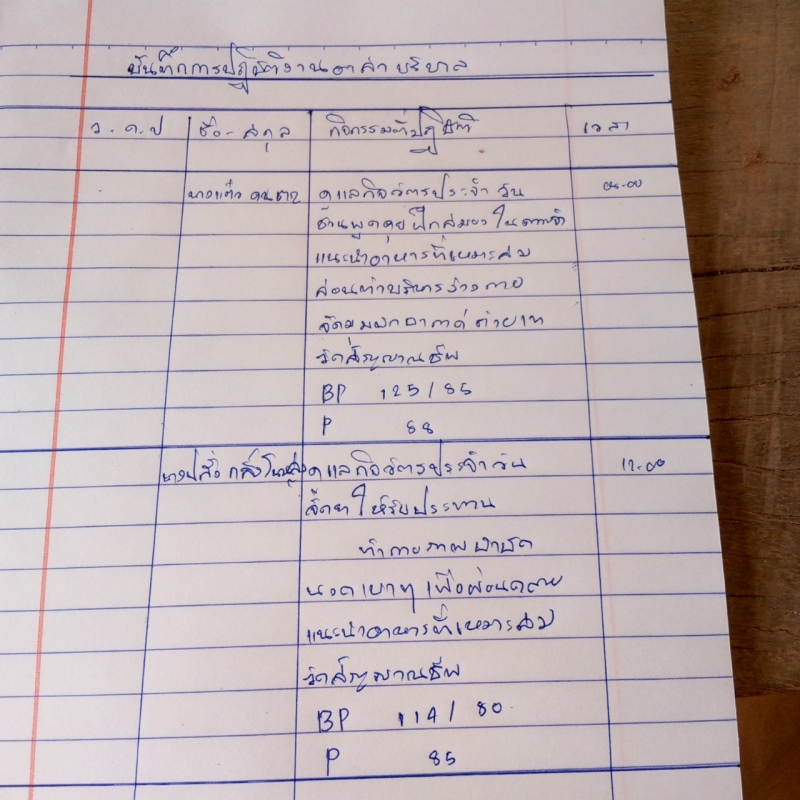 บันทึกการปฏิบัติงานอาสาบริบาล
ว.ด.ป ชื่อ-สกุล กิจกรรมที่ปฏิบัติ เวลา
นางแต๋ว ดูแลกิจวัตรประจำวัน
ชวนพูดคุย ฝึกสมอง
แนะนำอาหารที่เหมาะสม
สอนทำบริหารร่างกาย
วัดสัญญาณชีพ
BP 125/85
P 88
ดูแลกิจวัตรประจำวัน 12.00
จัดยาให้รับประทาน
ทำกายภาพบำบัด
นวดเบาๆ เพื่อผ่อนคลาย
แนะนำอาหารที่เหมาะสม
วัดสัญญาณชีพ
BP 114/80
P 85